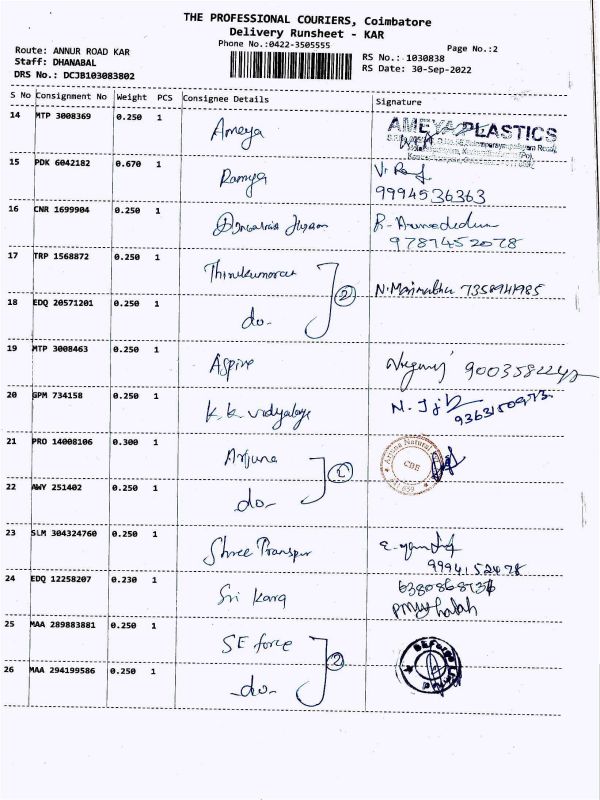 THE PROFESSIONAL COURIERS, Coimbatore
Delivery Runsheet - KAR
Phone No.:0422-3505555
Page No.:2
Route: ANNUR ROAD KAR
Staff: DHANABAL
DRS No.: DCJB103083802
RS No.: 1030838
RS Date: 30-Sep-2022
S No Consignment No Weight PCS Consignee Details Signature
14 MTP 3008369 0.250 1 Ameya AMEYA PLASTICS
15 PDK 6042182 0.670 1 Ramya
9994536363
16 CNR 1699904 0.250 1
9787452078
17 TRP 1568872 0.250 1 Thirukumaran
2 7358941985
18 EDQ 20571201 0.250 1 do-
19 MTP 3008463 0.250 1 Aspire
20 GPM 734158 0.250 1 K.K. Vidyalaya
21 PRO 14008106 0.300 1 Arjuna
CBE
22 AWY 251402 0.250 1 -do-
23 SLM 304324760 0.250 1 Shree Transpor
9994152478
24 EDQ 12258207 0.230 1 Sri Karg
25 MAA 289883881 0.250 1 SE force
2
26 MAA 294199586 0.250 1 -do-